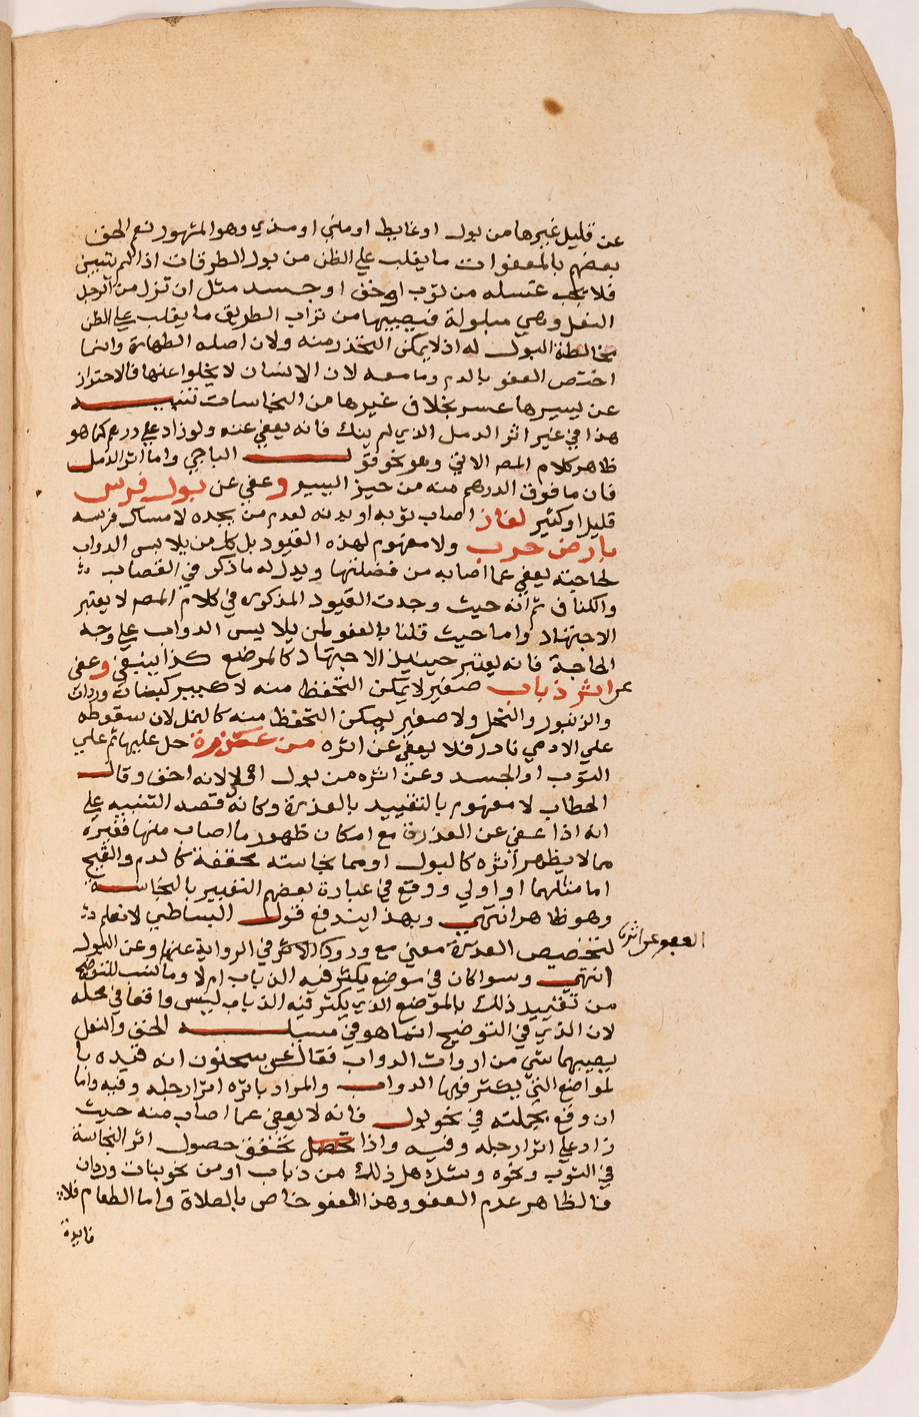 عن قليل غيرها من بول او غايط او مني او مذي وهو المشهور نعم الحق
بعضهم بالمعفوات ما يغلب على الظن من بول الطرقات اذا لم يتبين
فلا يجب غسله من ثوب او خف او جسد مثل ان تزل من الرجل
النعل وهي مبلولة فيصيبها من تراب الطريق ما يغلب على الظن
مخالطة البول له اذ لا يمكن التحذر منه ولان اصله الطهارة وانما
اختص العفو بالدم وما معه لان الانسان لا يخلوا عنها فالاحتراز
عن يسيرها عسر بخلاف غيرها من النجاسات تنبيه
هذا في غير اثر الدمل الذي لم ينك فانه يعفى عنه ولو زاد على درهم كما هو
ظاهر كلام المص الاتي وهو نحو قول الباجي واما اثر الدمل
فان ما فوق الدرهم منه من حيز اليسير وعفي عن بول فرس
قليل او كثير لغاز اصاب ثوبه او بدنه لعدم من يجده لامساك فرسه
بارض حرب ولا مفهوم لهذه القيود بل كل من يلابس الدواب
لحاجته يعفى عما اصابه من فضلتها ويدل له ما ذكر في القصاب
والكناف ثم انه حيث وجدت القيود المذكورة في كلام المص لا يعتبر
الاجتهاد واما حيث قلنا بالعفو لمن يلابس الدواب على وجه
الحاجة فانه يعتبر حينيذ الاجتهاد كالمرضع كذا ينبغي وعفي
عن اثر ذباب صغير لا يمكن التحفظ منه لا كبير كبنات وردان
والزنبور والنحل ولا صغير يمكن التحفظ منه كالنمل لان سقوطه
على الادمي نادر فلا يعفى عن اثره من عذرة حل عليها ثم على
الثوب او الجسد وعن اثره من بول اولى لانه اخف وقال
الحطاب لا مفهوم بالتقييد بالعذرة وكانه قصد التنبيه على
انه اذا عفي عن العذرة مع امكان ظهور ما اصاب منها فغيره
مما لا يظهر اثره كالبول او مما نجاسته مخففة كالدم والقيح
اما مثلهما او اولى ووقع في عبارة بعضهم التعبير بالنجاسة
وهو ظاهر انتهى وبهذا يندفع قول البساطي لا نعلم
لتخصيص العذرة معنى مع ورود الاكثر في الرواية عنها وعن البول
العفو عن اثر
انتهى وسوا كان في موضع يكثر فيه الذباب ام لا وما نسب للتوضيح
من تقييد ذلك بالموضع الذي يكثر فيه الذباب ليس واقعا في محله
لان الذي في التوضيح انما هو في مسيلة الخف والنعل
يصيبهما شي من ارواث الدواب فقال عن سحنون انه قيده با
لمواضع التي يكثر فيها الدواب والمراد باثره اثر رجله وفيه واما
ان وقع بجملته في نحو بول فانه لا يعفى عما اصاب منه حيث
زاد على اثر رجله وفيه واذا تحقق حصول اثر النجاسة
في الثوب ونحوه وشك هل ذلك من ذباب او من نحو بنات وردان
فالظاهر عدم العفو وهذا العفو خاص بالصلاة واما الطعام فلا
فايدة